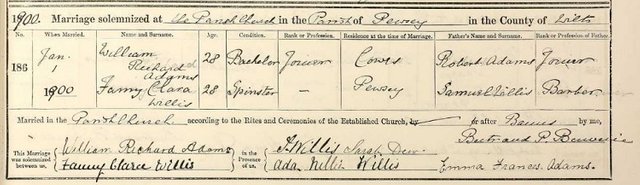 1900. Marriage solemnized at the Parish Church in the Parish of Pewsey in the County of Wilts
No. When Married. Name and Surname. Age. Condition. Rank or Profession. Residence at the time of Marriage. Father's Name and Surname. Rank or Profession of Father.
186 Jan. 1 1900
William Richard Adams 28 Bachelor Cowes Robert Adams
Fanny Clara Willis 28 Spinster — Pewsey Samuel Willis Barber
Married in the Parish Church according to the Rites and Ceremonies of the Established Church, by or after Banns by me,
Bertrand P. Bouverie
This Marriage was solemnized between us, William Richard Adams
Fanny Clara Willis
in the Presence of us, S. Willis Sarah Dew
Ada Nellie Willis Emma Frances Adams.